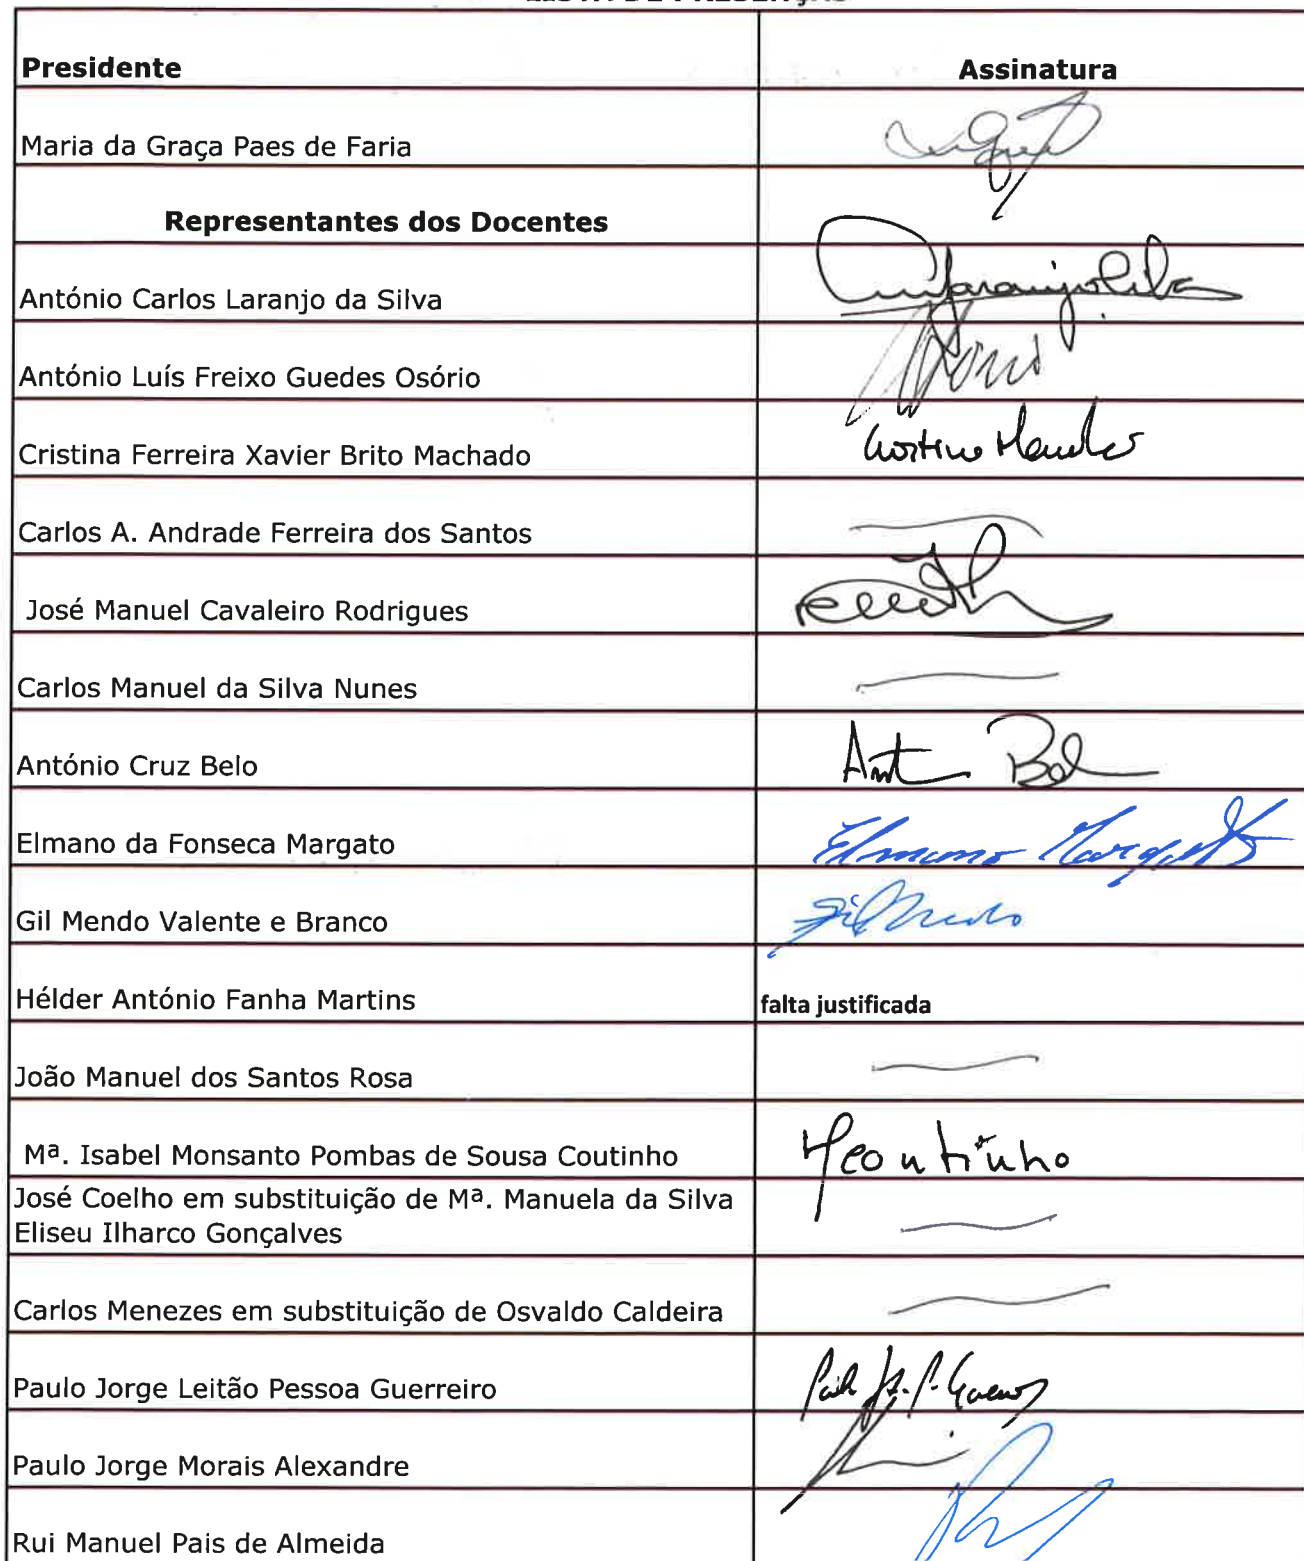 Presidente
Assinatura
Maria da Graça Paes de Faria
Representantes dos Docentes
António Carlos Laranjo da Silva
António Luís Freixo Guedes Osório
Cristina Ferreira Xavier Brito Machado
Carlos A. Andrade Ferreira dos Santos
José Manuel Cavaleiro Rodrigues
Carlos Manuel da Silva Nunes
António Cruz Belo
Elmano da Fonseca Margato
Elmano Margato
Gil Mendo Valente e Branco
Gil Mendo
Hélder António Fanha Martins
falta justificada
João Manuel dos Santos Rosa
Mª. Isabel Monsanto Pombas de Sousa Coutinho
José Coelho em substituição de Mª. Manuela da Silva
Eliseu Ilharco Gonçalves
Carlos Menezes em substituição de Osvaldo Caldeira
Paulo Jorge Leitão Pessoa Guerreiro
Paulo Jorge Morais Alexandre
Rui Manuel Pais de Almeida